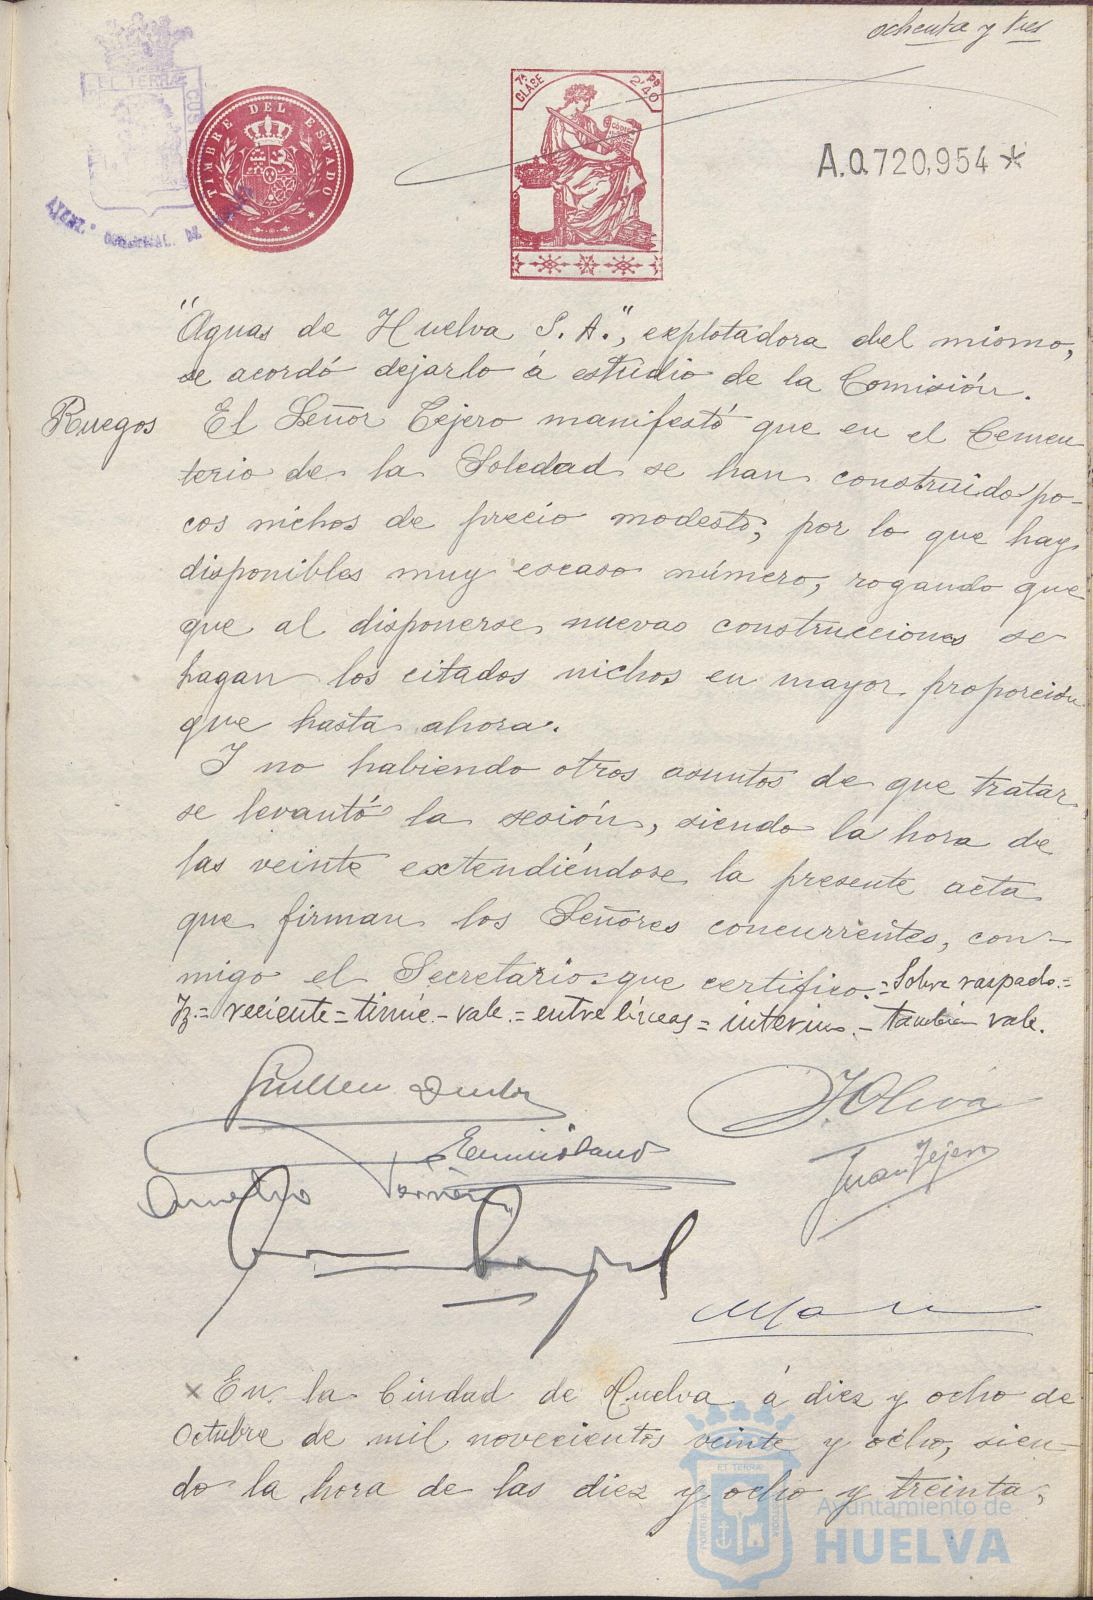 ochenta y tres
EL TERRA
TIMBRE DEL ESTADO
7ª CLASE
Ps 2'40
A.0.720,954*
"Aguas de Huelva S. A.", explotadora del mismo,
se acordó dejarlo á estudio de la Comisión.
Ruegos El Señor Tejero manifestó que en el Cemen
terio de la Soledad se han construido po-
cos nichos de precio modesto; por lo que hay
disponibles muy escaso número, rogando que
que al disponerse nuevas construcciones se
hagan los citados nichos en mayor proporción
que hasta ahora.
Y no habiendo otros asuntos de que tratar,
se levantó la sesión, siendo la hora de
las veinte extendiéndose la presente acta
que firman los Señores concurrentes, con-
migo el Secretario que certifico.=Sobre raspado.=
reciente= =vale.=entre líneas= =también vale.
J Oliva
Juan Tejero
En la Ciudad de Huelva á diez y ocho de
Octubre de mil novecientos veinte y ocho, sien-
do la hora de las diez y ocho y treinta,
EL TERRA
Ayuntamiento de
HUELVA